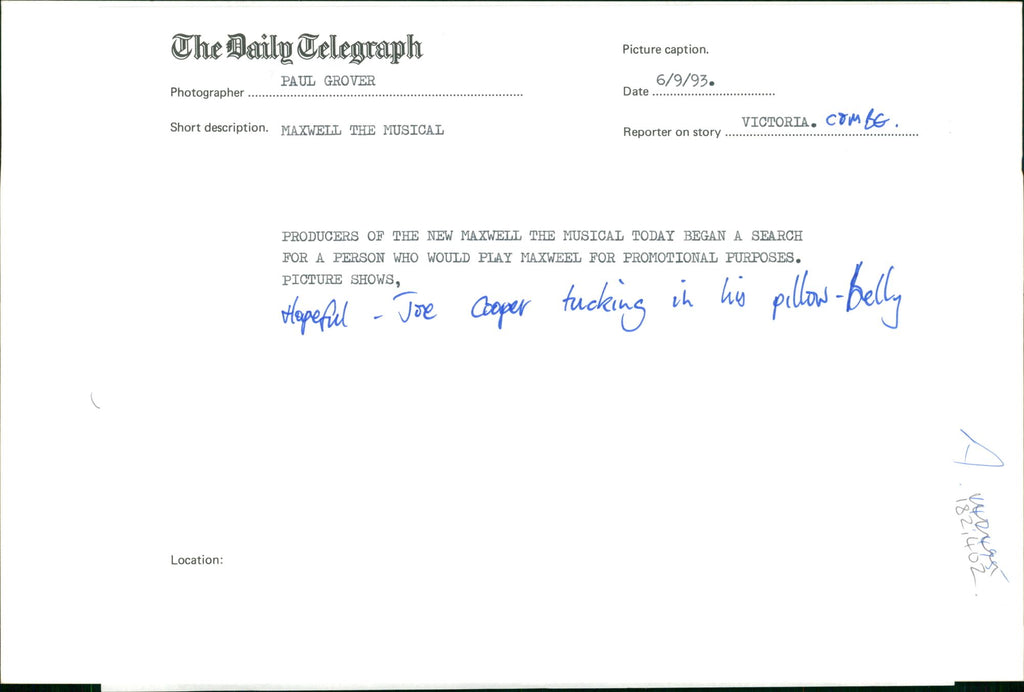 The Daily Telegraph
Picture caption.
Photographer PAUL GROVER
Date 6/9/93.
Short description. MAXWELL THE MUSICAL
Reporter on story VICTORIA. COMBE.
PRODUCERS OF THE NEW MAXWELL THE MUSICAL TODAY BEGAN A SEARCH
FOR A PERSON WHO WOULD PLAY MAXWEEL FOR PROMOTIONAL PURPOSES.
PICTURE SHOWS,
Hopeful - Joe Cooper tucking in his pillow-belly
Location:
A
182,462